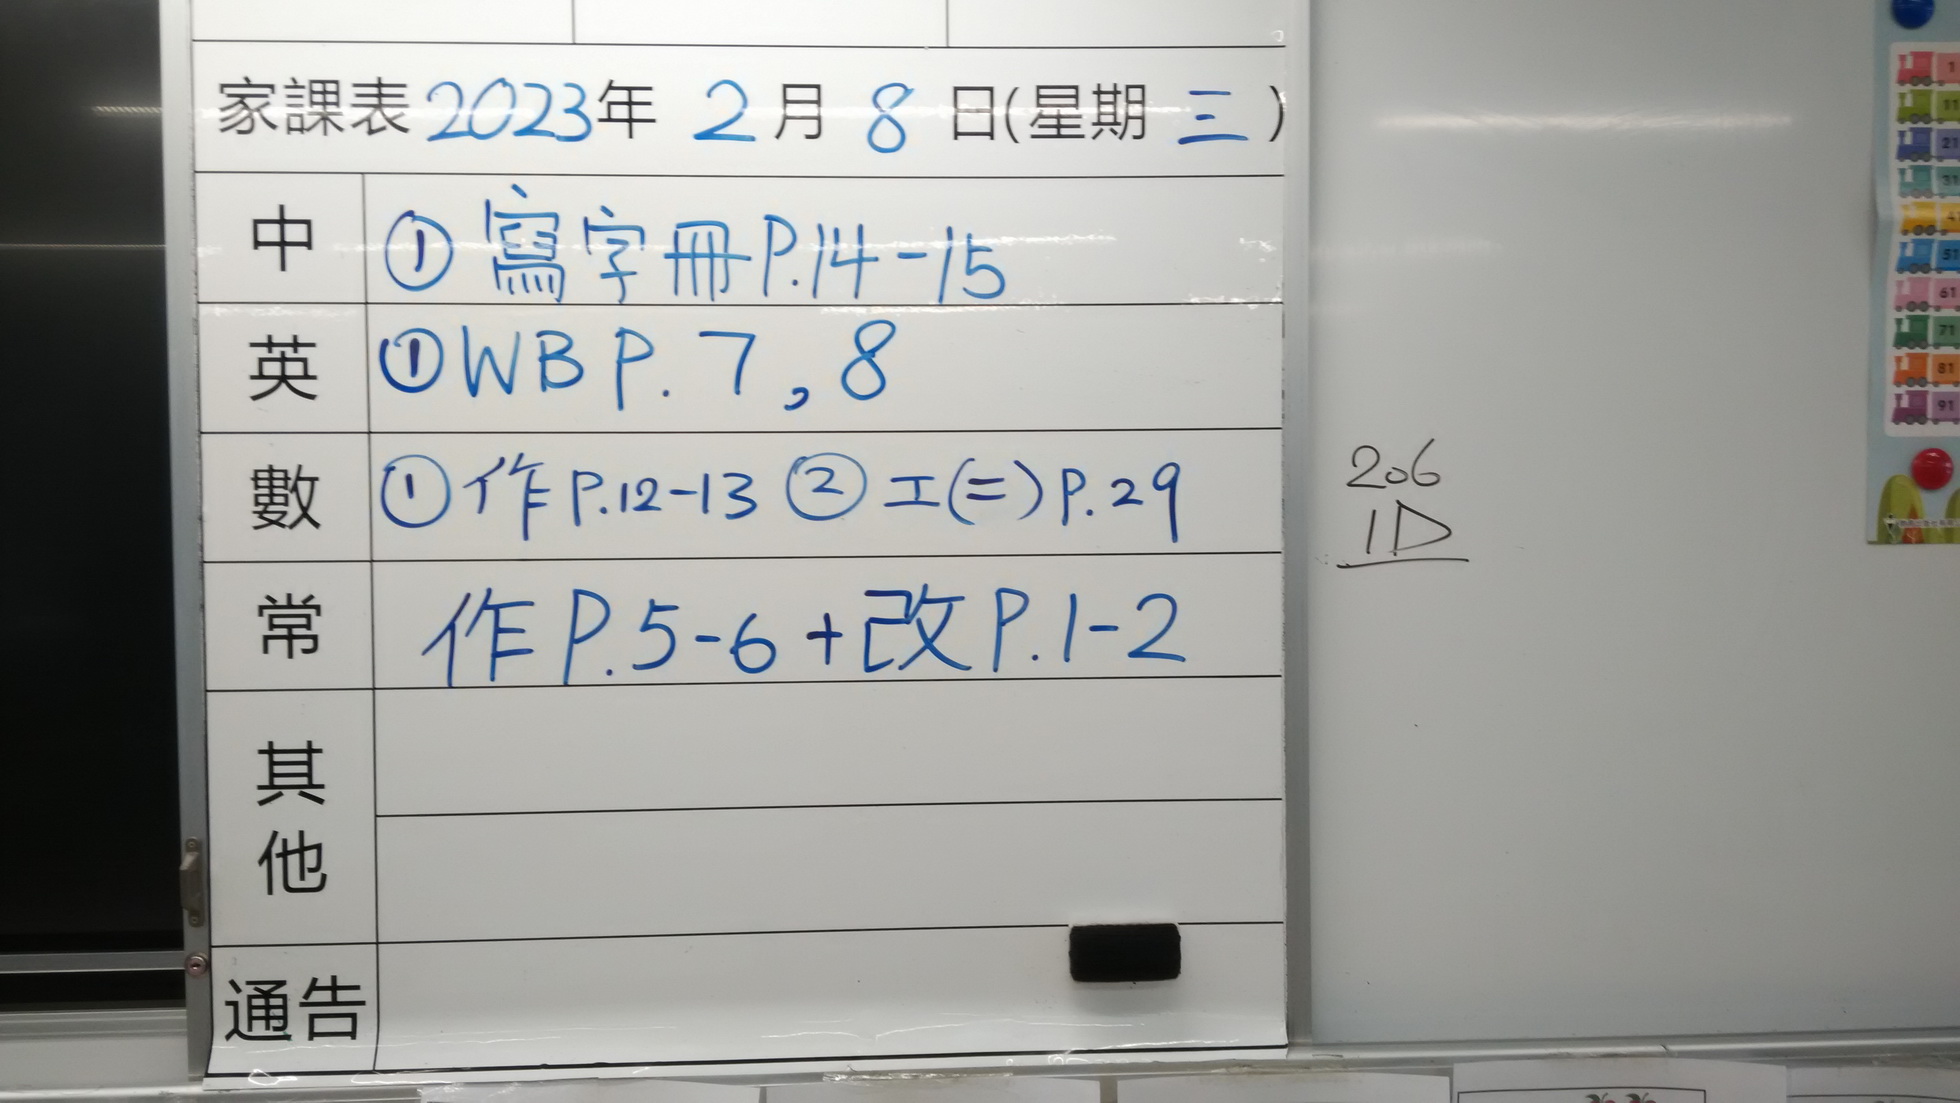 家課表 2023年 2月8日(星期三)
中 ① 寫字冊P.14-15
英 ① WB P. 7, 8
數 ① 作 P.12-13 ② 工(二) P.29
常 作 P.5-6 + 改 P.1-2
其他
通告
206
1D
1
11
21
31
41
51
61
71
81
91